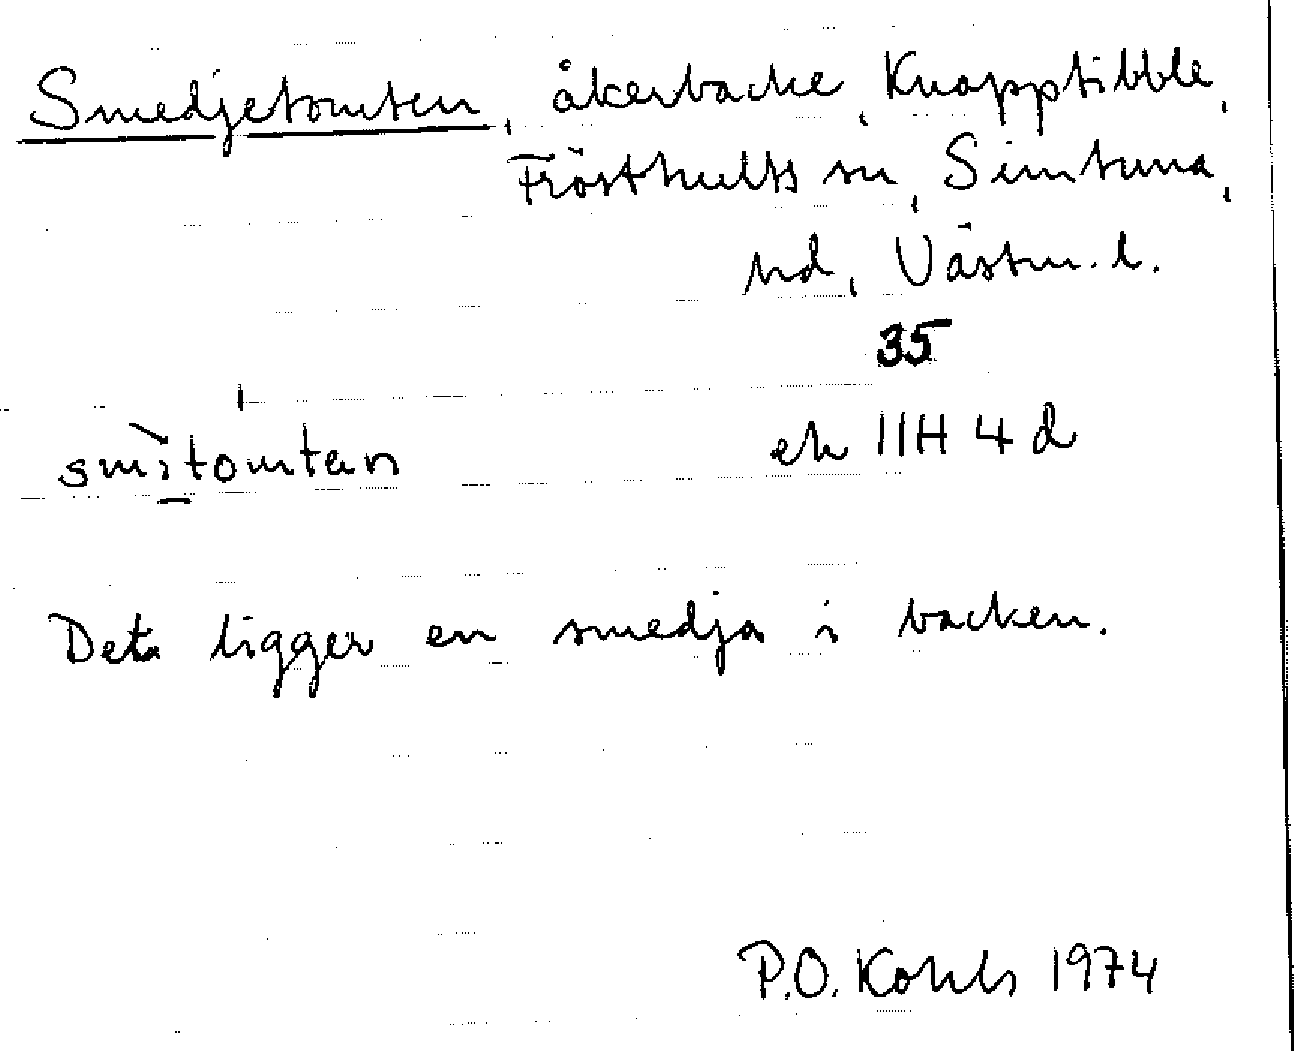 Smedjetomten, åkerbacke, Knapptibble,
Frösthults sn, Simtuna,
hd, Västm. l.
35
smìtomtan ek 11H 4 d
Det ligger en smedja i backen.
P.O. Kohls 1974